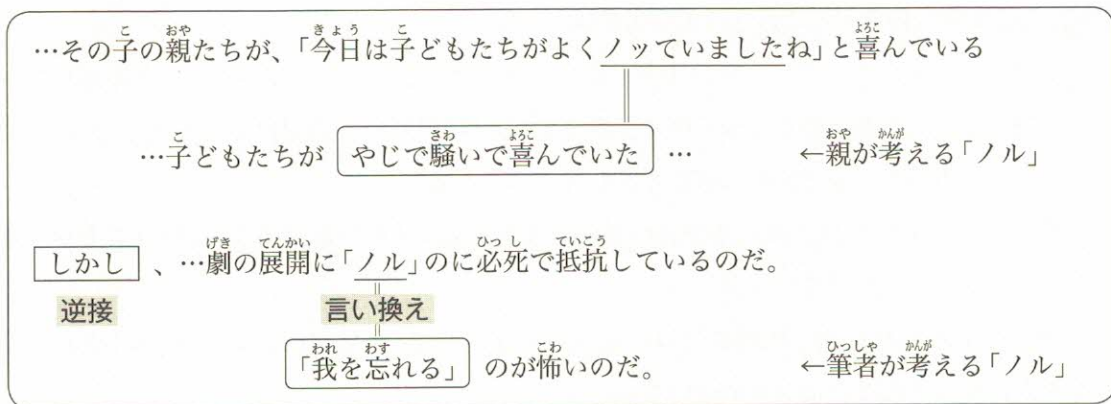 …その子の親たちが、「今日は子どもたちがよくノッていましたね」と喜んでいる
…子どもたちが やじで騒いで喜んでいた … ←親が考える「ノル」
しかし 、…劇の展開に「ノル」のに必死で抵抗しているのだ。
逆接 言い換え
「我を忘れる」 のが怖いのだ。 ←筆者が考える「ノル」